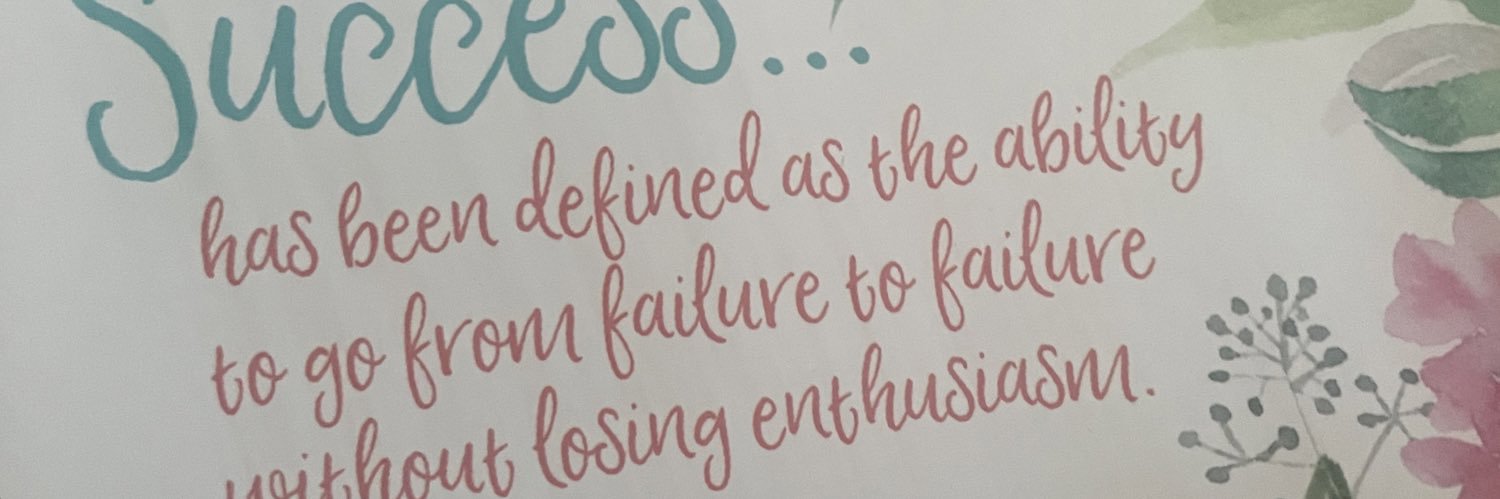 Success...
has been defined as the ability
to go from failure to failure
without losing enthusiasm.